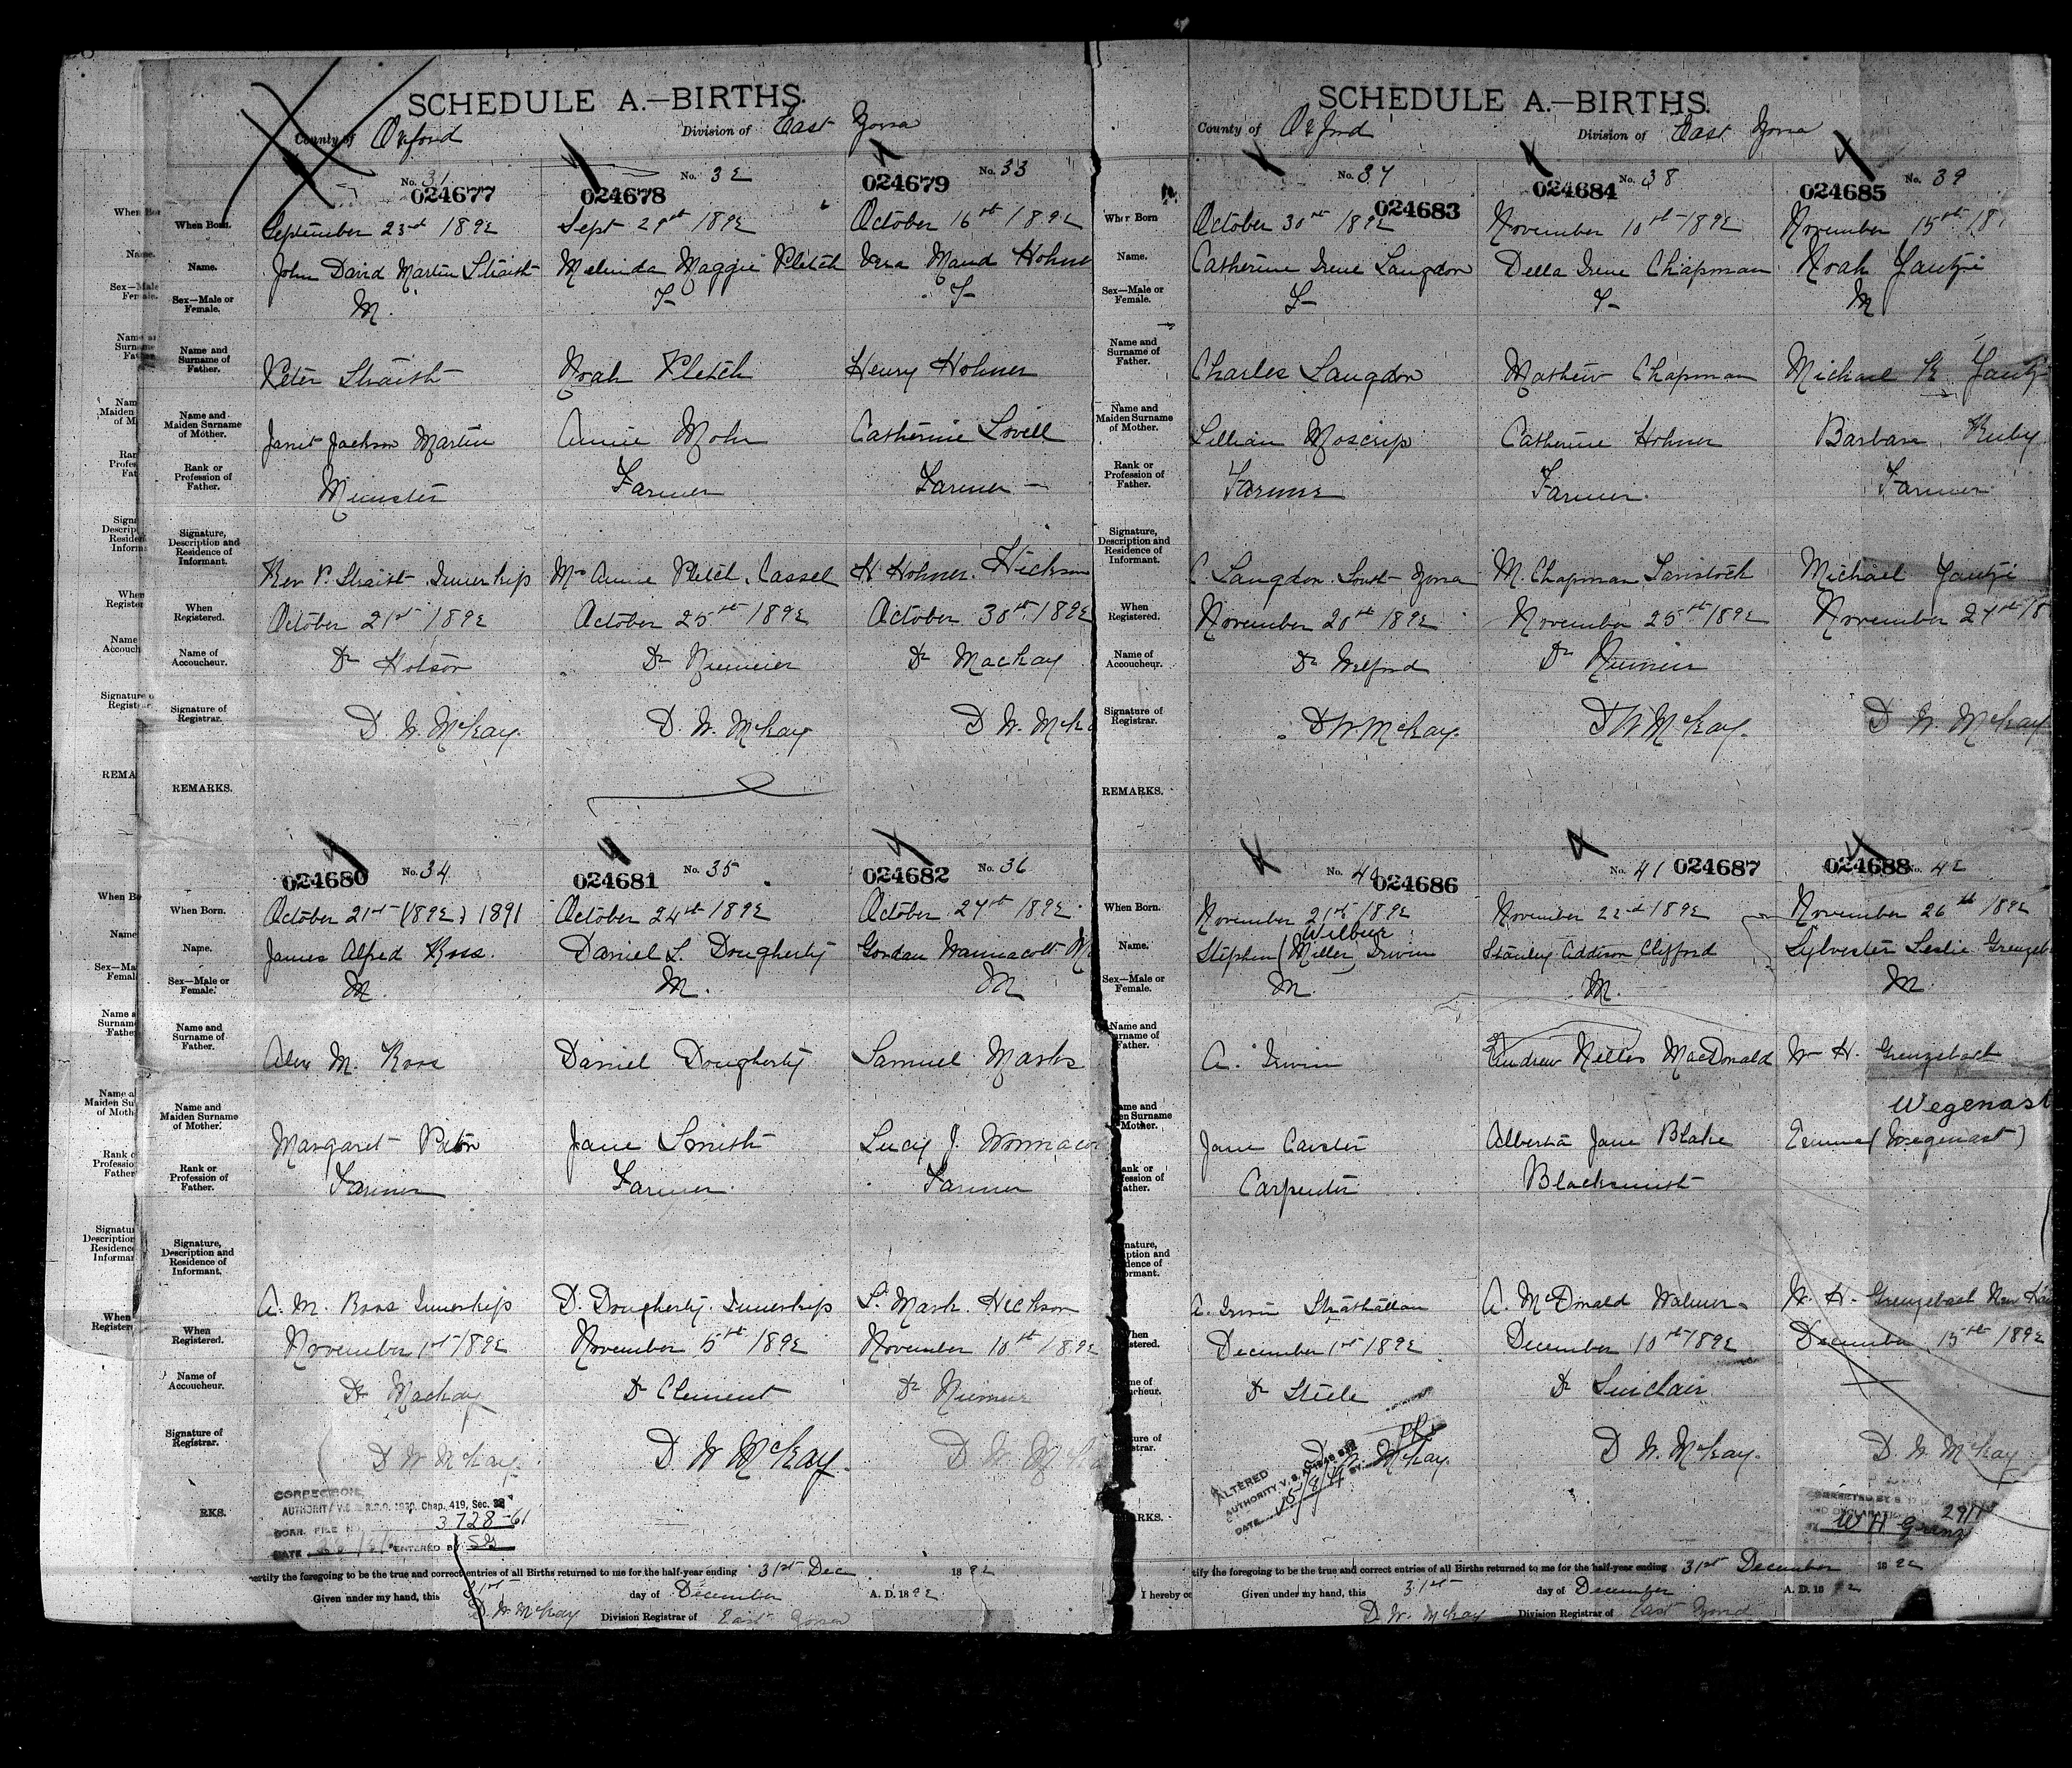 SCHEDULE A.—BIRTHS.
County of Oxford Division of East Zorra
No. 31 024677 024678 No. 32 024679 No. 33
When Born. September 23rd 1892 Sept 29th 1892 October 16th 1892
Name. John David Martin Straith Melinda Maggie Pletch Vera Maud Hohner
Sex—Male or Female. M. F F
Name and Surname of Father. Peter Straith Noah Pletch Henry Hohner
Name and Maiden Surname of Mother. Janet Jackson Martin Annie Mohr Catherine Lovell
Rank or Profession of Father. Minister Farmer Farmer
Signature, Description and Residence of Informant. Rev P. Straith Innerkip Mrs Annie Pletch, Cassel H. Hohner. Hickson
When Registered. October 21st 1892 October 25th 1892 October 30th 1892
Name of Accoucheur. Dr Hotson Dr Niemeier Dr Mackay
Signature of Registrar. D. W. McKay. D. W. McKay D W. McK
REMARKS.
024680 No. 34 024681 No. 35 024682 No. 36
When Born. October 21st (1892) 1891 October 24th 1892 October 27th 1892
Name. James Alfred Ross. Daniel L. Dougherty Gordan Wannacott
Sex—Male or Female. M. M. M
Name and Surname of Father. Alex M. Ross Daniel Dougherty Samuel Marks
Name and Maiden Surname of Mother. Margaret Jane Smith Lucy J.
Rank or Profession of Father. Farmer Farmer Farmer
Signature, Description and Residence of Informant. A. M. Ross Innerkip D. Dougherty. Innerkip S. Mark. Hickson
When Registered. November 1st 1892 November 5th 1892 November 10th 1892
Name of Accoucheur. Dr Mackay Dr Clement Dr
Signature of Registrar. D W McKay D W McKay. D W. McKa
RKS. CORRECTION
AUTHORITY V.S. R.S.O. 1950, Chap. 419, Sec.
3728-61
DATE ENTERED BY
certify the foregoing to be the true and correct entries of all Births returned to me for the half-year ending 31st Dec 1892
Given under my hand, this 31st day of December A. D. 1892
D. W McKay Division Registrar of East Zorra
SCHEDULE A.—BIRTHS.
County of Oxford Division of East Zorra
No. 37 024683 024684 No. 38 024685 No. 39
When Born October 30th 1892 November 10th 1892 November 15th 18
Name. Catherine Irene Langdon Della Irene Chapman Noah Yantzi
Sex—Male or Female. F F M
Name and Surname of Father. Charles Langdon Mathew Chapman Michael K Yantzi
Name and Maiden Surname of Mother. Lillian Moscrip Catherine Hohner Barbara Ruby
Rank or Profession of Father. Farmer Farmer. Farmer
Signature, Description and Residence of Informant. C. Langdon. South Zorra M. Chapman, Tavistock Michael Yantzi
When Registered. November 20th 1892 November 25th 1892 November 27th 18
Name of Accoucheur. Dr Welford Dr
Signature of Registrar. D W McKay. D W McKay. D W. McKay
REMARKS.
No. 40 024686 No. 41 024687 024688 No. 42
When Born. November 21st 1892 November 22nd 1892 November 26th 1892
Wilbur
Name. Stephen (Miller) Irwin Stanley Addison Clifford Sylvester Leslie Grenzeb
Sex—Male or Female. M. M. M
Name and Surname of Father. A. Irwin Andrew Nelles MacDonald W H. Grenzebach
Wegenast
Name and Maiden Surname of Mother. Jane Alberta Jane Blake Emma (Wegenast)
Rank or Profession of Father. Carpenter Blacksmith
A. Irwin Strathallan A. McDonald W. H. Grenzebach New
December 1st 1892 December 10th 1892 December 15th 1892
Dr Steele Dr Sinclair
D. W. McKay. D W. McKay. D. W. McKay
ALTERED
AUTHORITY V. S. A.
DATE 15/8/49 BY
CORRECTED BY
W H
I hereby certify the foregoing to be the true and correct entries of all Births returned to me for the half-year ending 31st December 1892
Given under my hand, this 31st day of December A. D. 1892
D. W. McKay Division Registrar of East Zorra